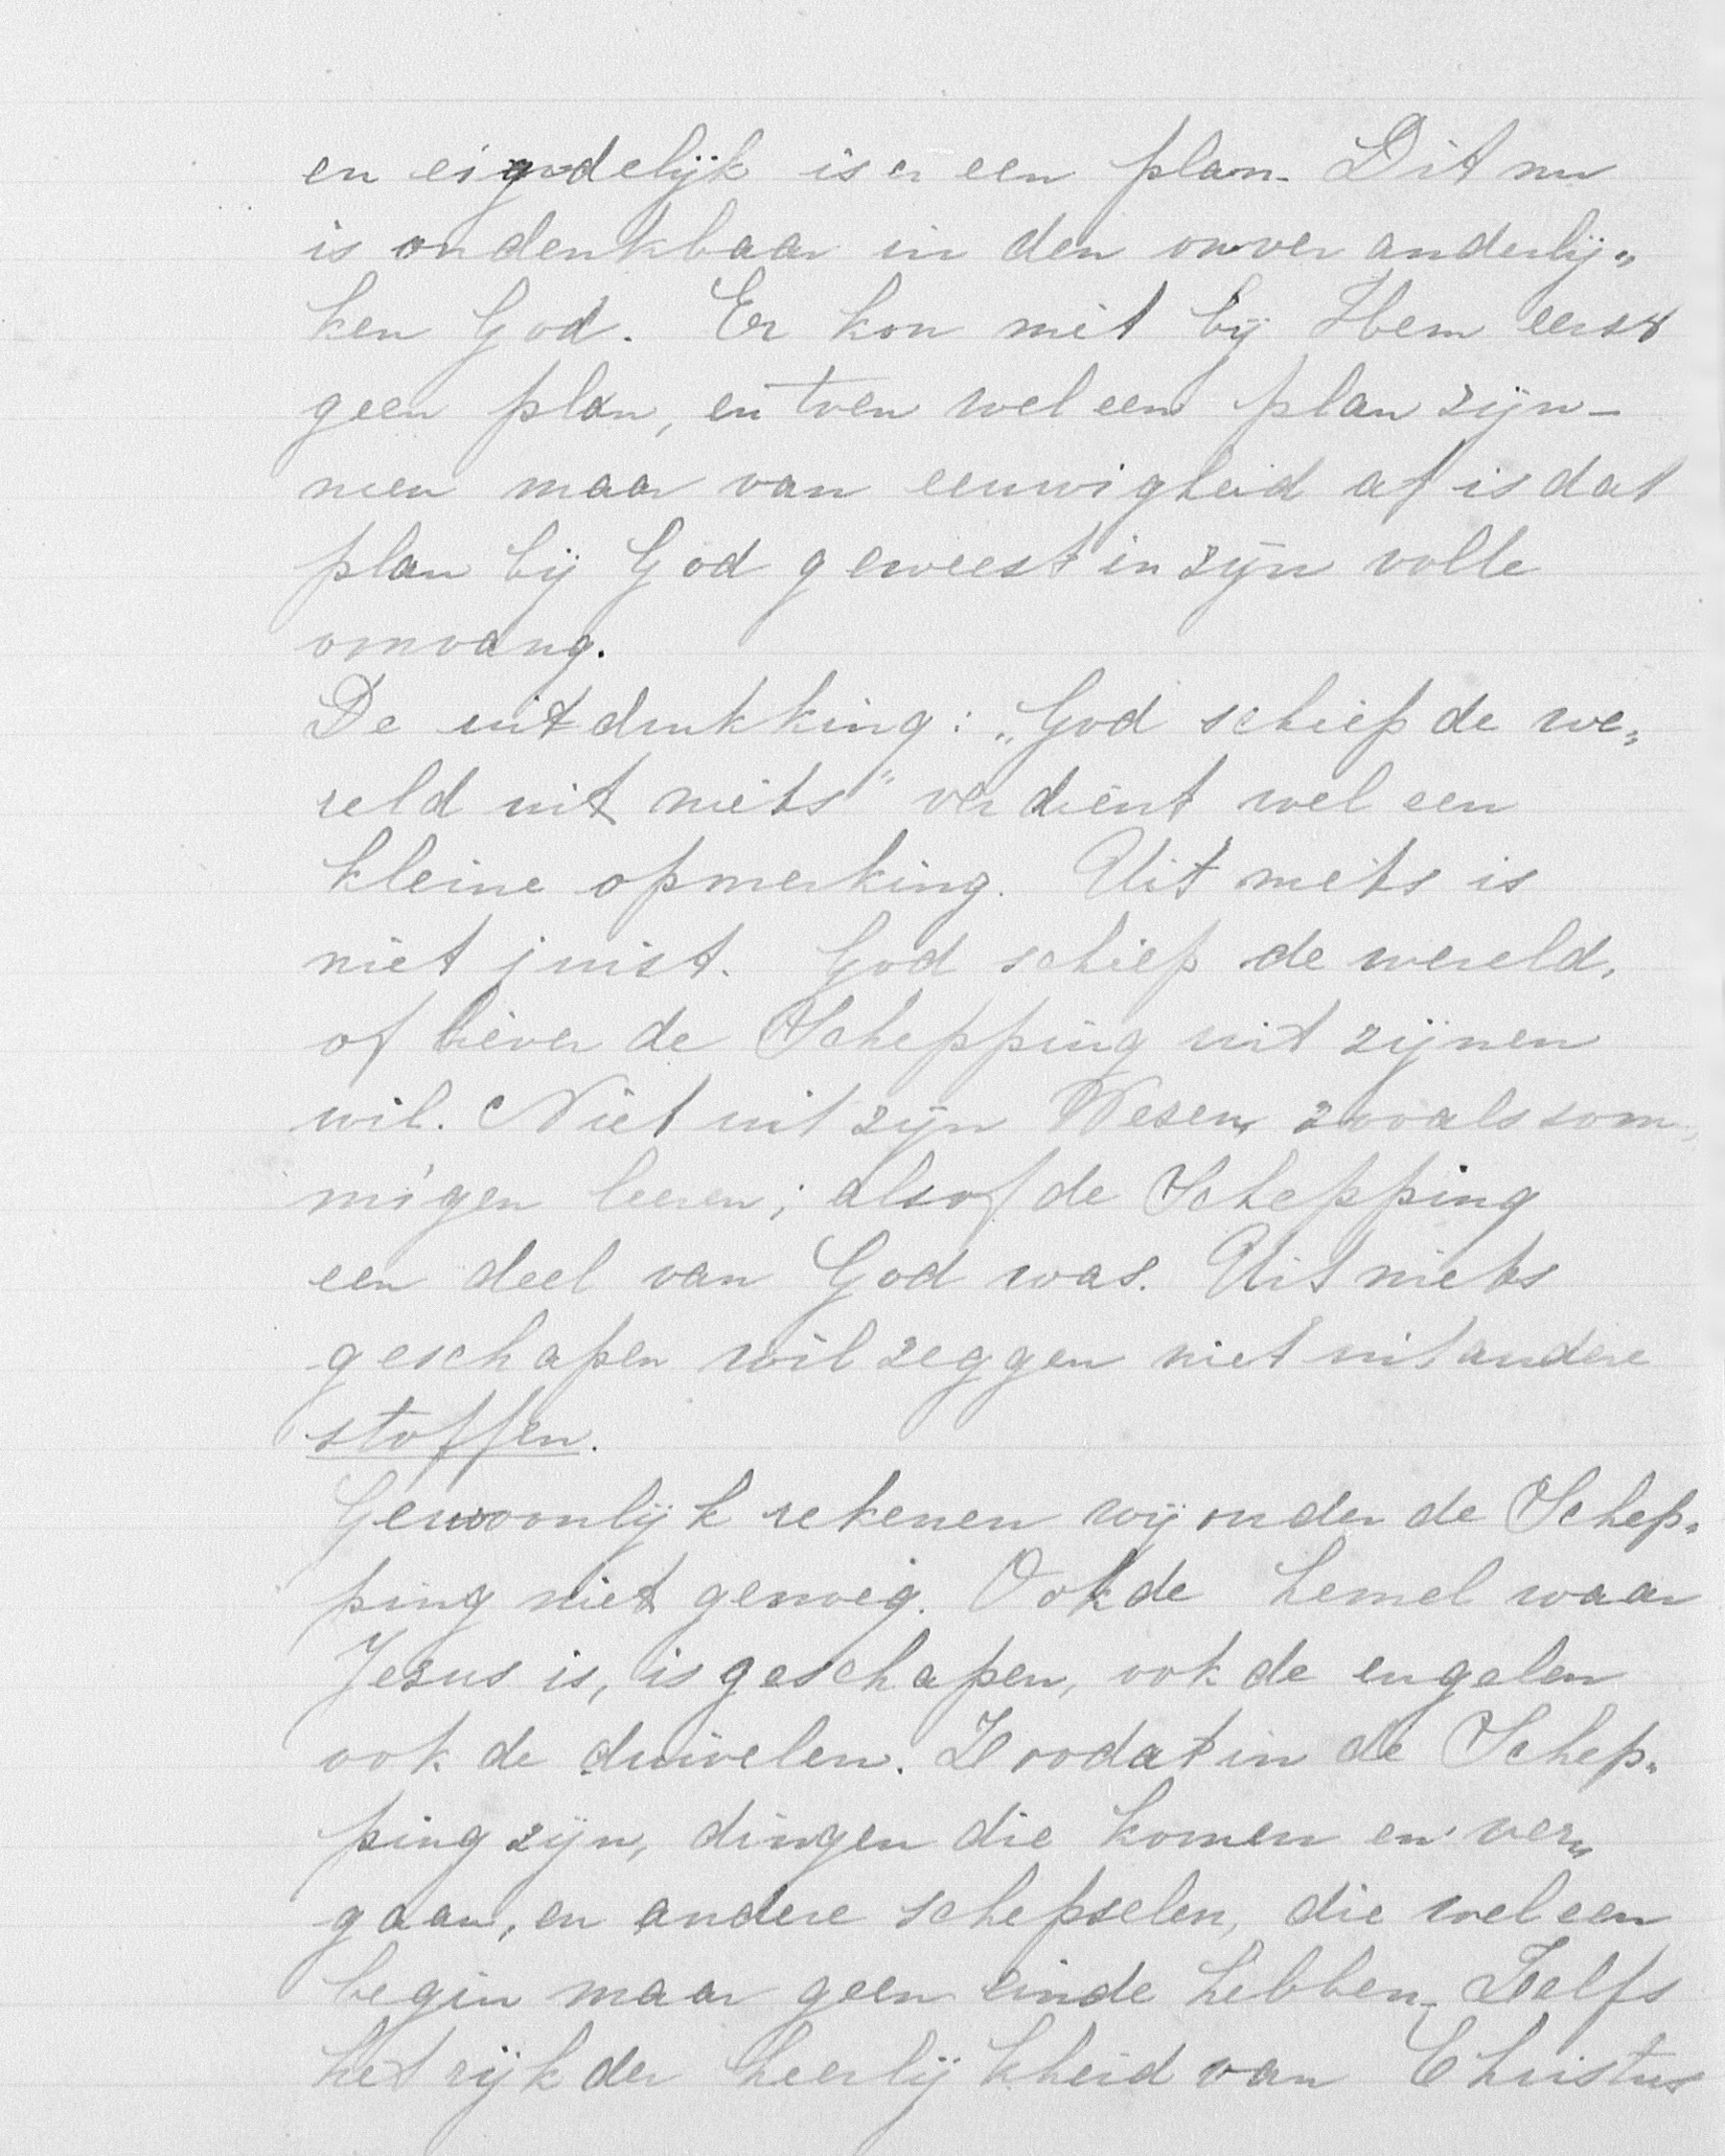 en eigndelijk is er een plan. Dit nu
is ondenkbaar in den onveranderlij„
ken God. Er kon niet bij Hem eerst
geen plan, en toen wel een plan zijn –
neen maar van eeuwigheid af is dat
plan bij God geweest in zijn volle
omvang.
De uitdrukking: „God schiep de we„
reld uit niets" verdient wel een
kleine opmerking. Uit niets is
niet juist. God schiep de wereld,
of liever de Schepping uit zijnen
wil. Niet uit zijn Wezen, zooals som„
migen leeren; alsof de Schepping
een deel van God was. Uit niets
geschapen wil zeggen niet uit andere
stoffen.
Gewoonlijk rekenen wij onder de Schep„
ping niet genoeg. Ook de hemel waar
Jezus is, is geschapen, ook de engelen
ook de duivelen. Zoodat in de Schep„
ping zijn, dingen die komen en ver„
gaan, en andere schepselen, die wel een
begin maar geen einde hebben. Zelfs
het rijk der heerlijkheid van Christus